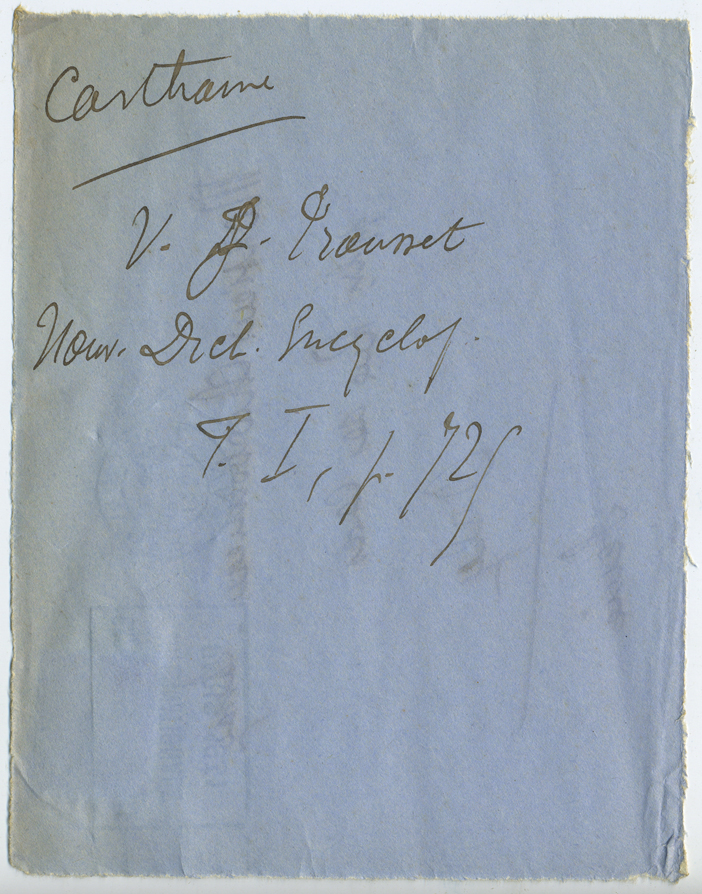 Carthame
V. J. Trousset
Nouv. Dict. Encyclop.
T. I, p. 725